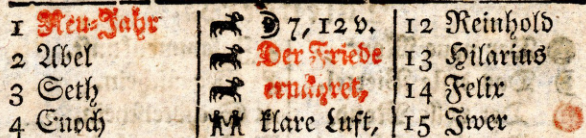 1 Neu-Jahr ☽ 7, 12 v. 12 Reinhold
2 Abel Der Friede 13 Hilarius
3 Seth ernähret, 14 Felix
4 Enoch klare Luft, 15 Iwer